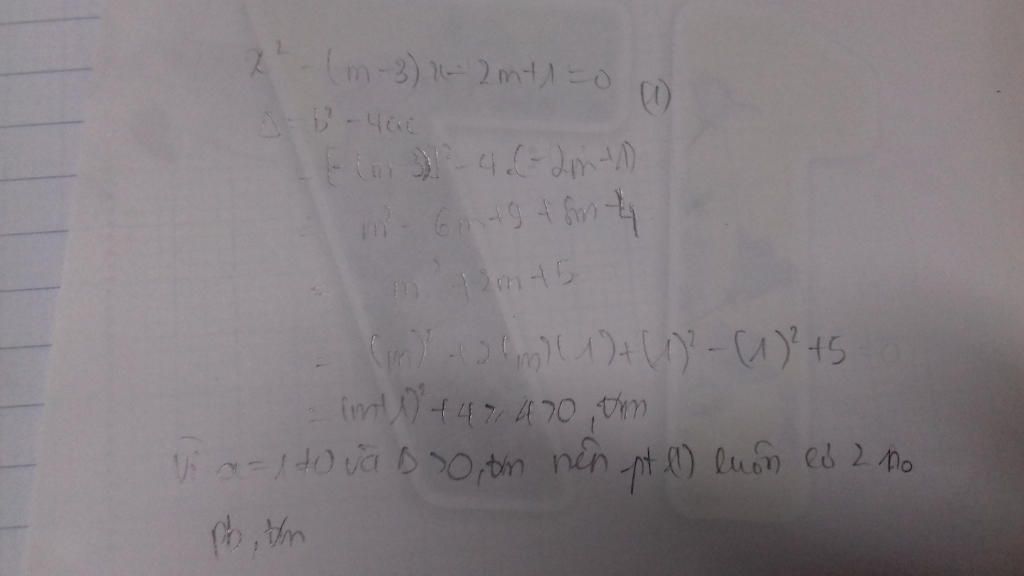 x² - (m-3)x - 2m+1 = 0 (1)
Δ = b² - 4ac
= [-(m-3)]² - 4.(-2m+1)
= m² - 6m+9 + 8m-4
= m² + 2m+5
= (m)² + 2(m)(1)+(1)² - (1)² +5
= (m+1)² +4 ≥ 4 >0, ∀m
Vì a=1≠0 và Δ >0, ∀m nên pt (1) luôn có 2 no
pb, ∀m